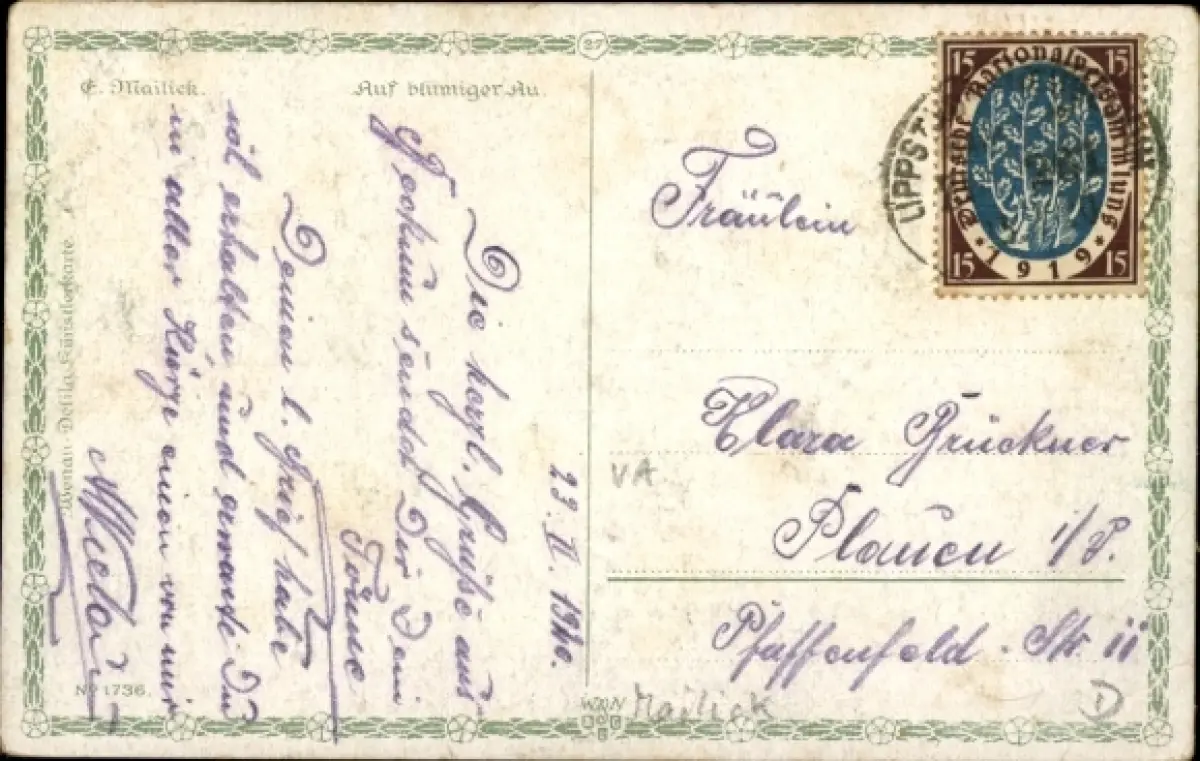 E. Mailick.
Auf blumiger Au.
27
15 15
Deutsche Nationalversammlung
* 1919 *
15 15
LIPPST
Fräulein
Klara Brückner
Plauen i/V.
Pfaffenfeld-Str 11
VA
Mailick
D
Die herzl. Grüße aus
sendet Dir Dein
Deinen l. Brief habe
ich erhalten und erwarte Du
in aller Kürze einen von mir
Wenau-Delila Künstlerkarte
No 1736.